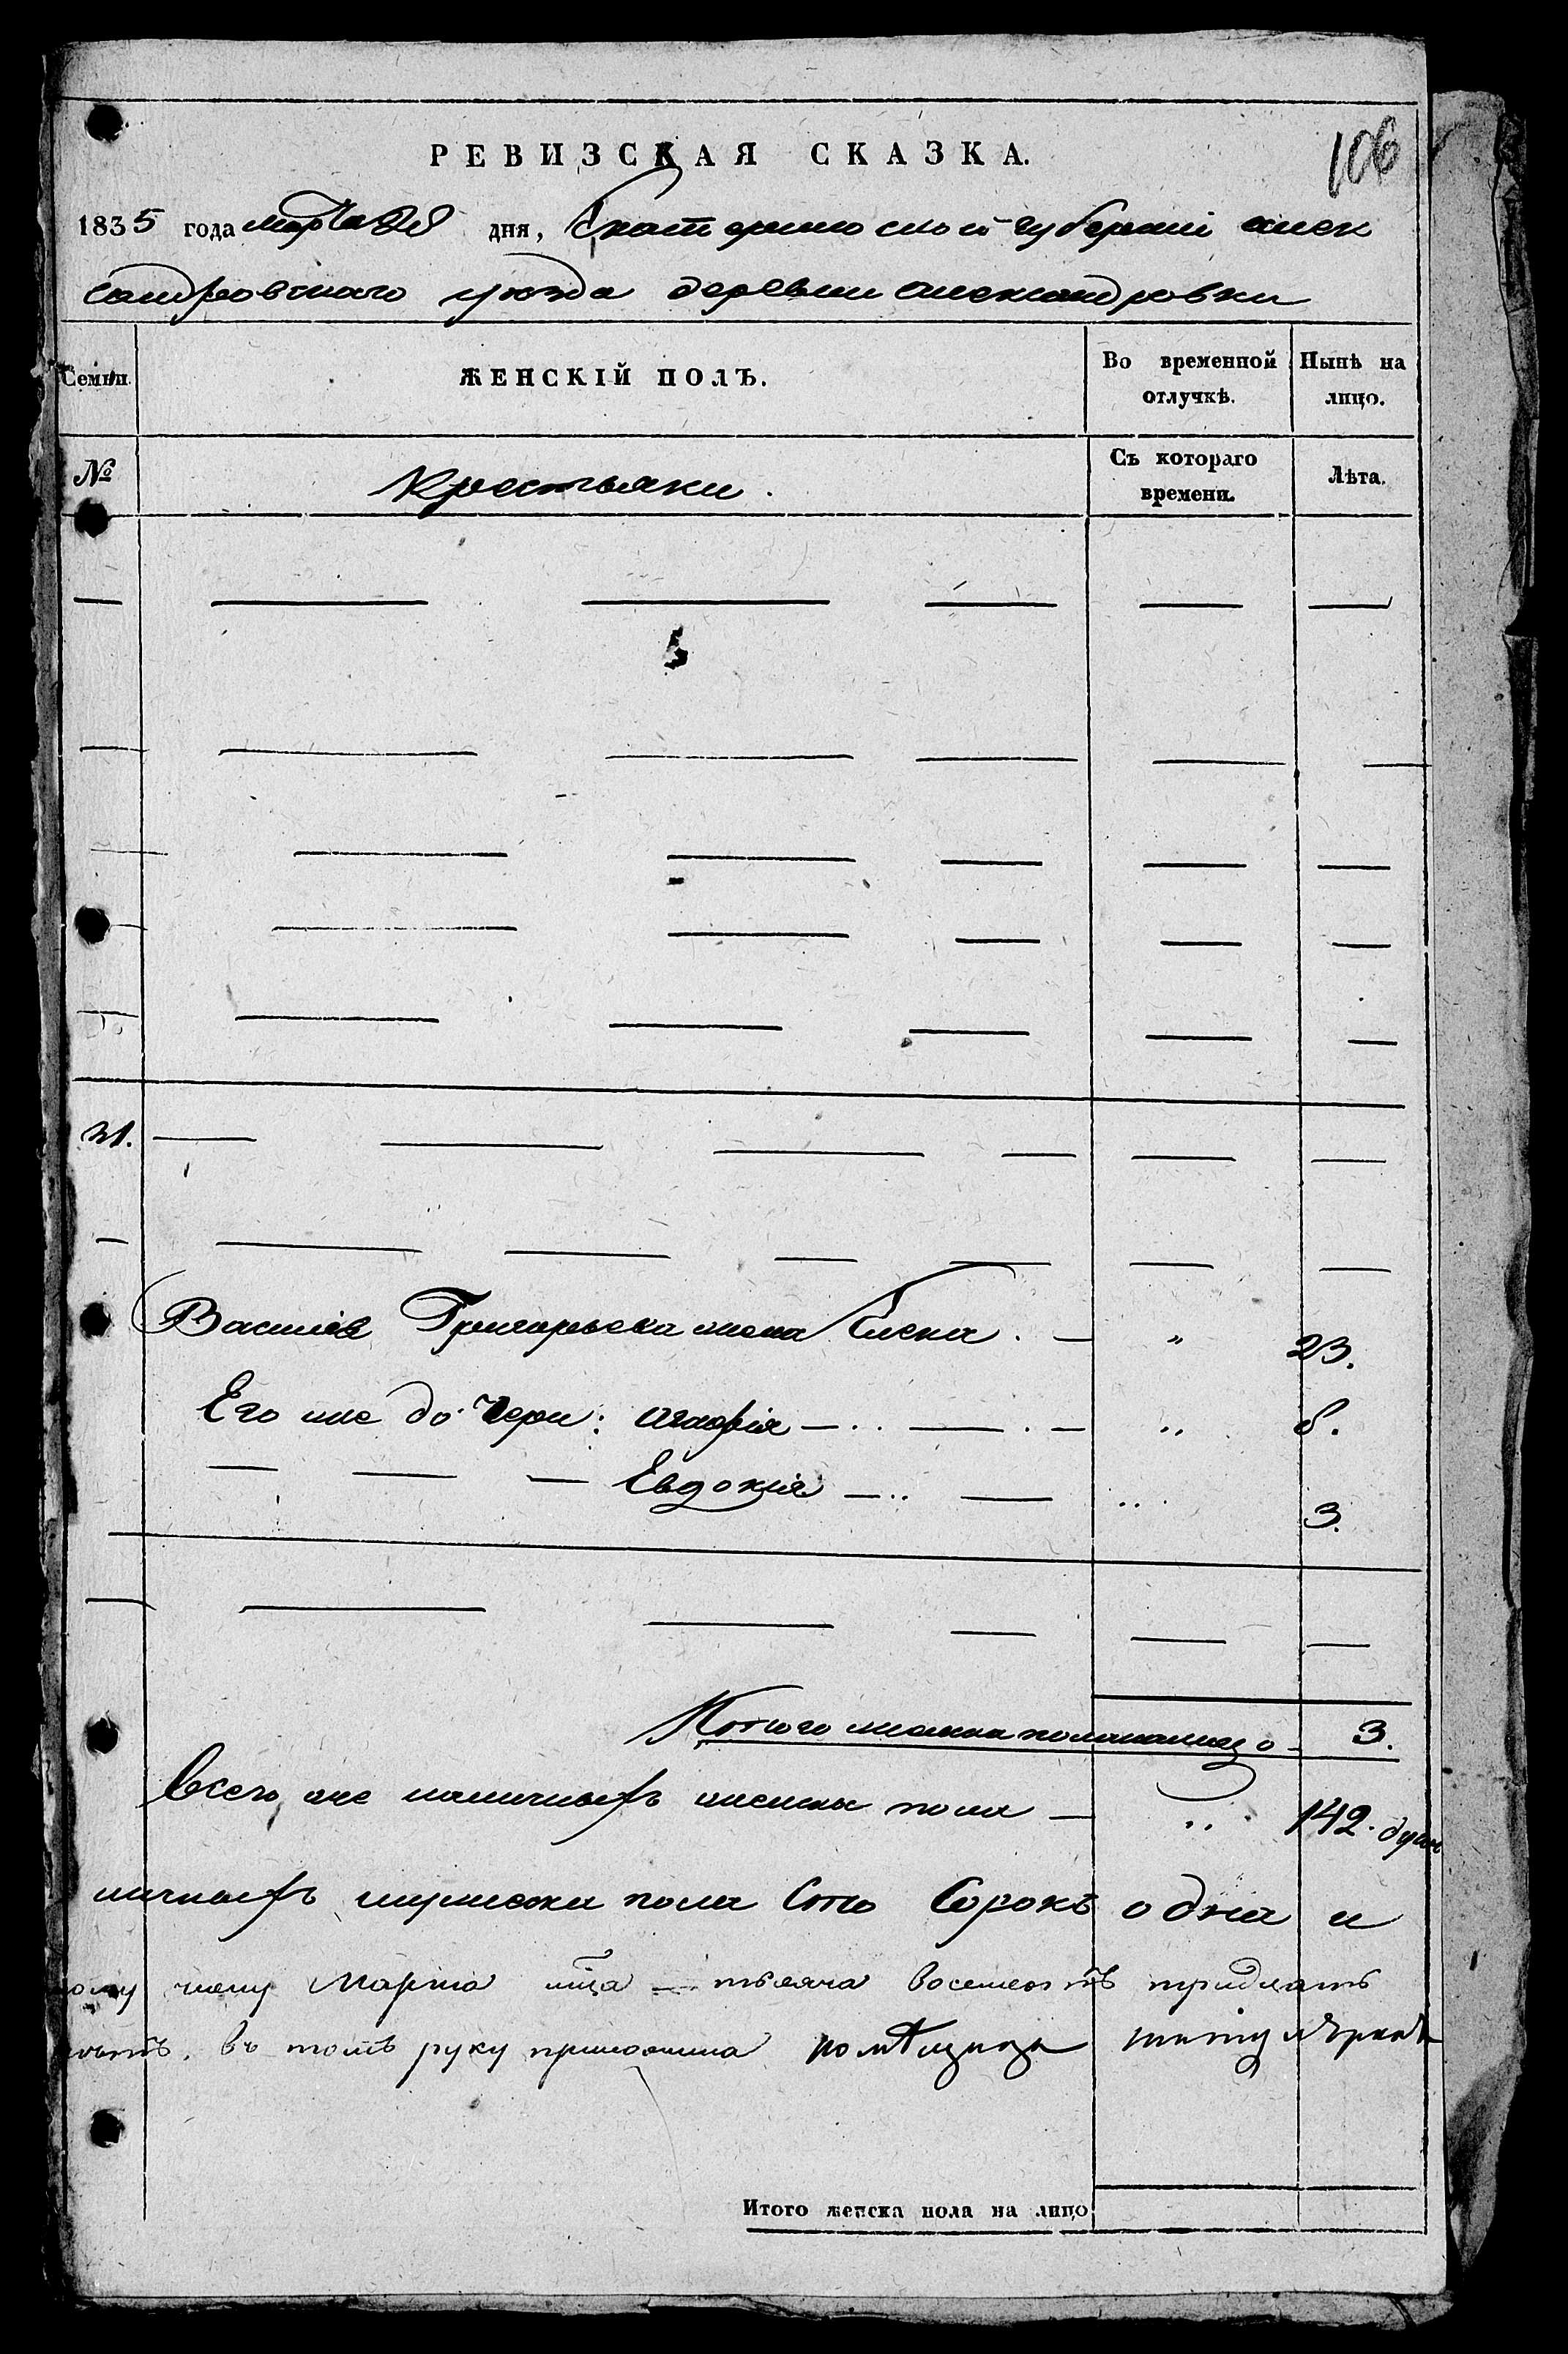 РЕВИЗСКАЯ СКАЗКА.
106
1835 года марта 28 дня, Екатеринославской губерніи алек
сандровскаго уезда деревни александровки
Семьи. ЖЕНСКІЙ ПОЛЪ. Во временной отлучкѣ. Нынѣ на лицо.
№ Крестьянки. Съ котораго времени. Лѣта.
31.
Василія Григорьева жена Елена. — „ 23.
Его же дочери: Марія — „ 6.
Евдокія — „ 3.
Итого женска пола налицо — 3.
Всего же наличныхъ женска пола — „ 142. душ
личныхъ мужеска пола Сто Сорокъ одна и
чему марта мца — тысяча восемсотъ тридцать
въ томъ руку приложила помѣщица титулярная
Итого женска пола на лицо